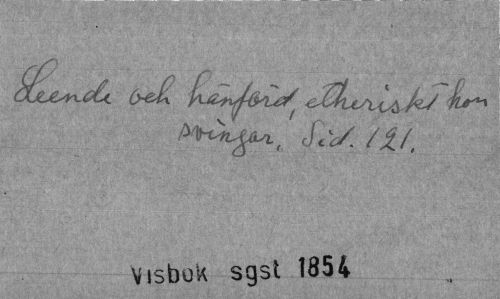 Leende och hänförd, etheriskt hon
svingar. Sid. 121.
Visbok sgst 1854